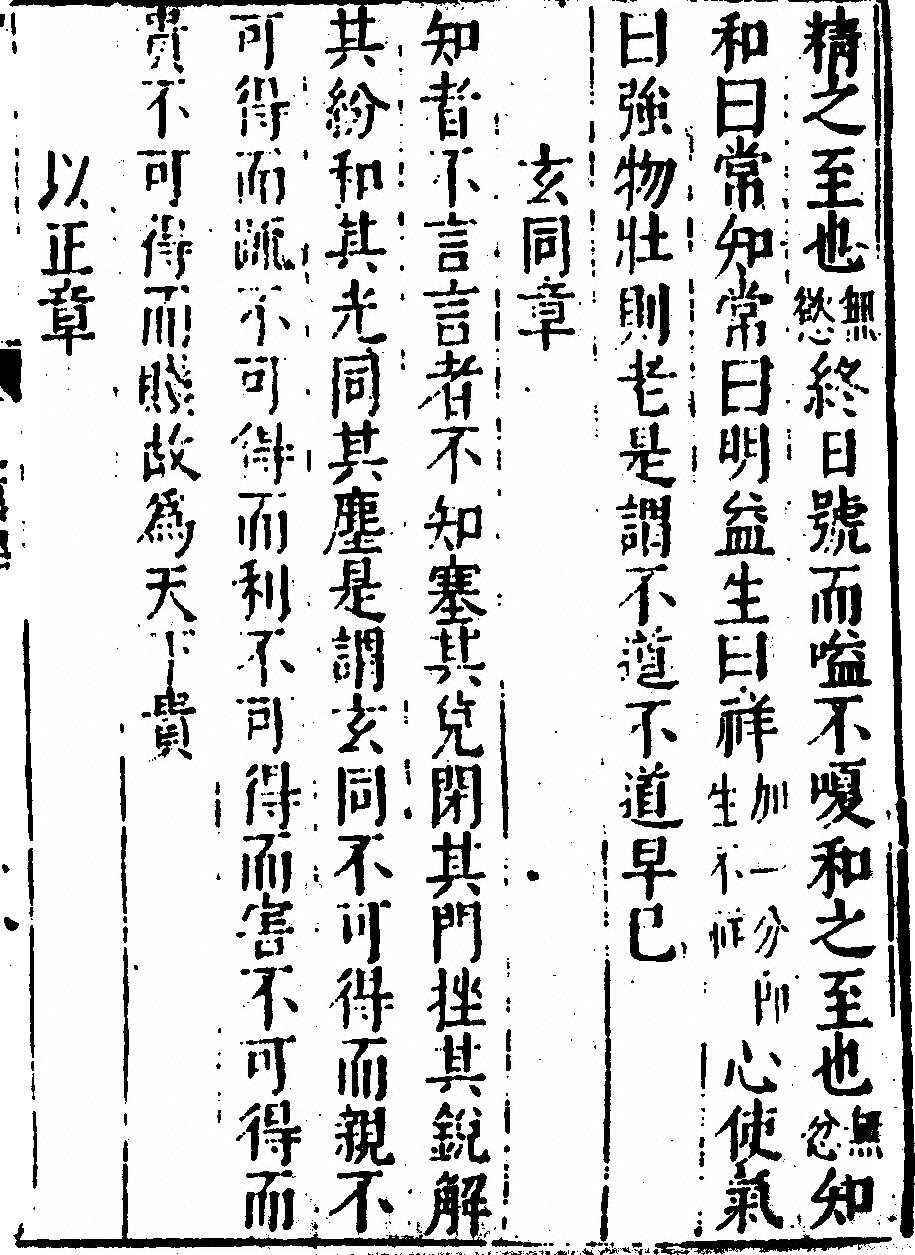 精之至也無慾終日號而嗌不嗄和之至也無忿知
和曰常知常曰明益生曰祥加一分即生不祥心使氣
曰強物壯則老是謂不道不道早已
玄同章
知者不言言者不知塞其兌閉其門挫其銳解
其紛和其光同其塵是謂玄同不可得而親不
可得而疏不可得而利不可得而害不可得而
貴不可得而賤故爲天下貴
以正章